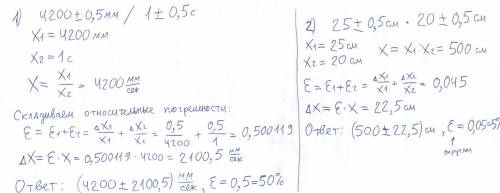 1) 4200 ± 0,5 мм / 1 ± 0,5 с
X1 = 4200 мм
X2 = 1 с
X = X1/X2 = 4200 мм/сек
Складываем относительные погрешности:
Ɛ = Ɛ1 + Ɛ2 = ΔX1/X1 + ΔX2/X2 = 0,5/4200 + 0,5/1 = 0,500119
ΔX = Ɛ · X = 0,500119 · 4200 = 2100,5 мм/сек
Ответ: (4200 ± 2100,5) мм/сек, Ɛ = 0,5 = 50%
2) 25 ± 0,5 см · 20 ± 0,5 см
X1 = 25 см
X2 = 20 см
X = X1 · X2 = 500 см
Ɛ = Ɛ1 + Ɛ2 = ΔX1/X1 + ΔX2/X2 = 0,045
ΔX = Ɛ · X = 22,5 см
Ответ: (500 ± 22,5) см, Ɛ = 0,05 = 5%
округлил